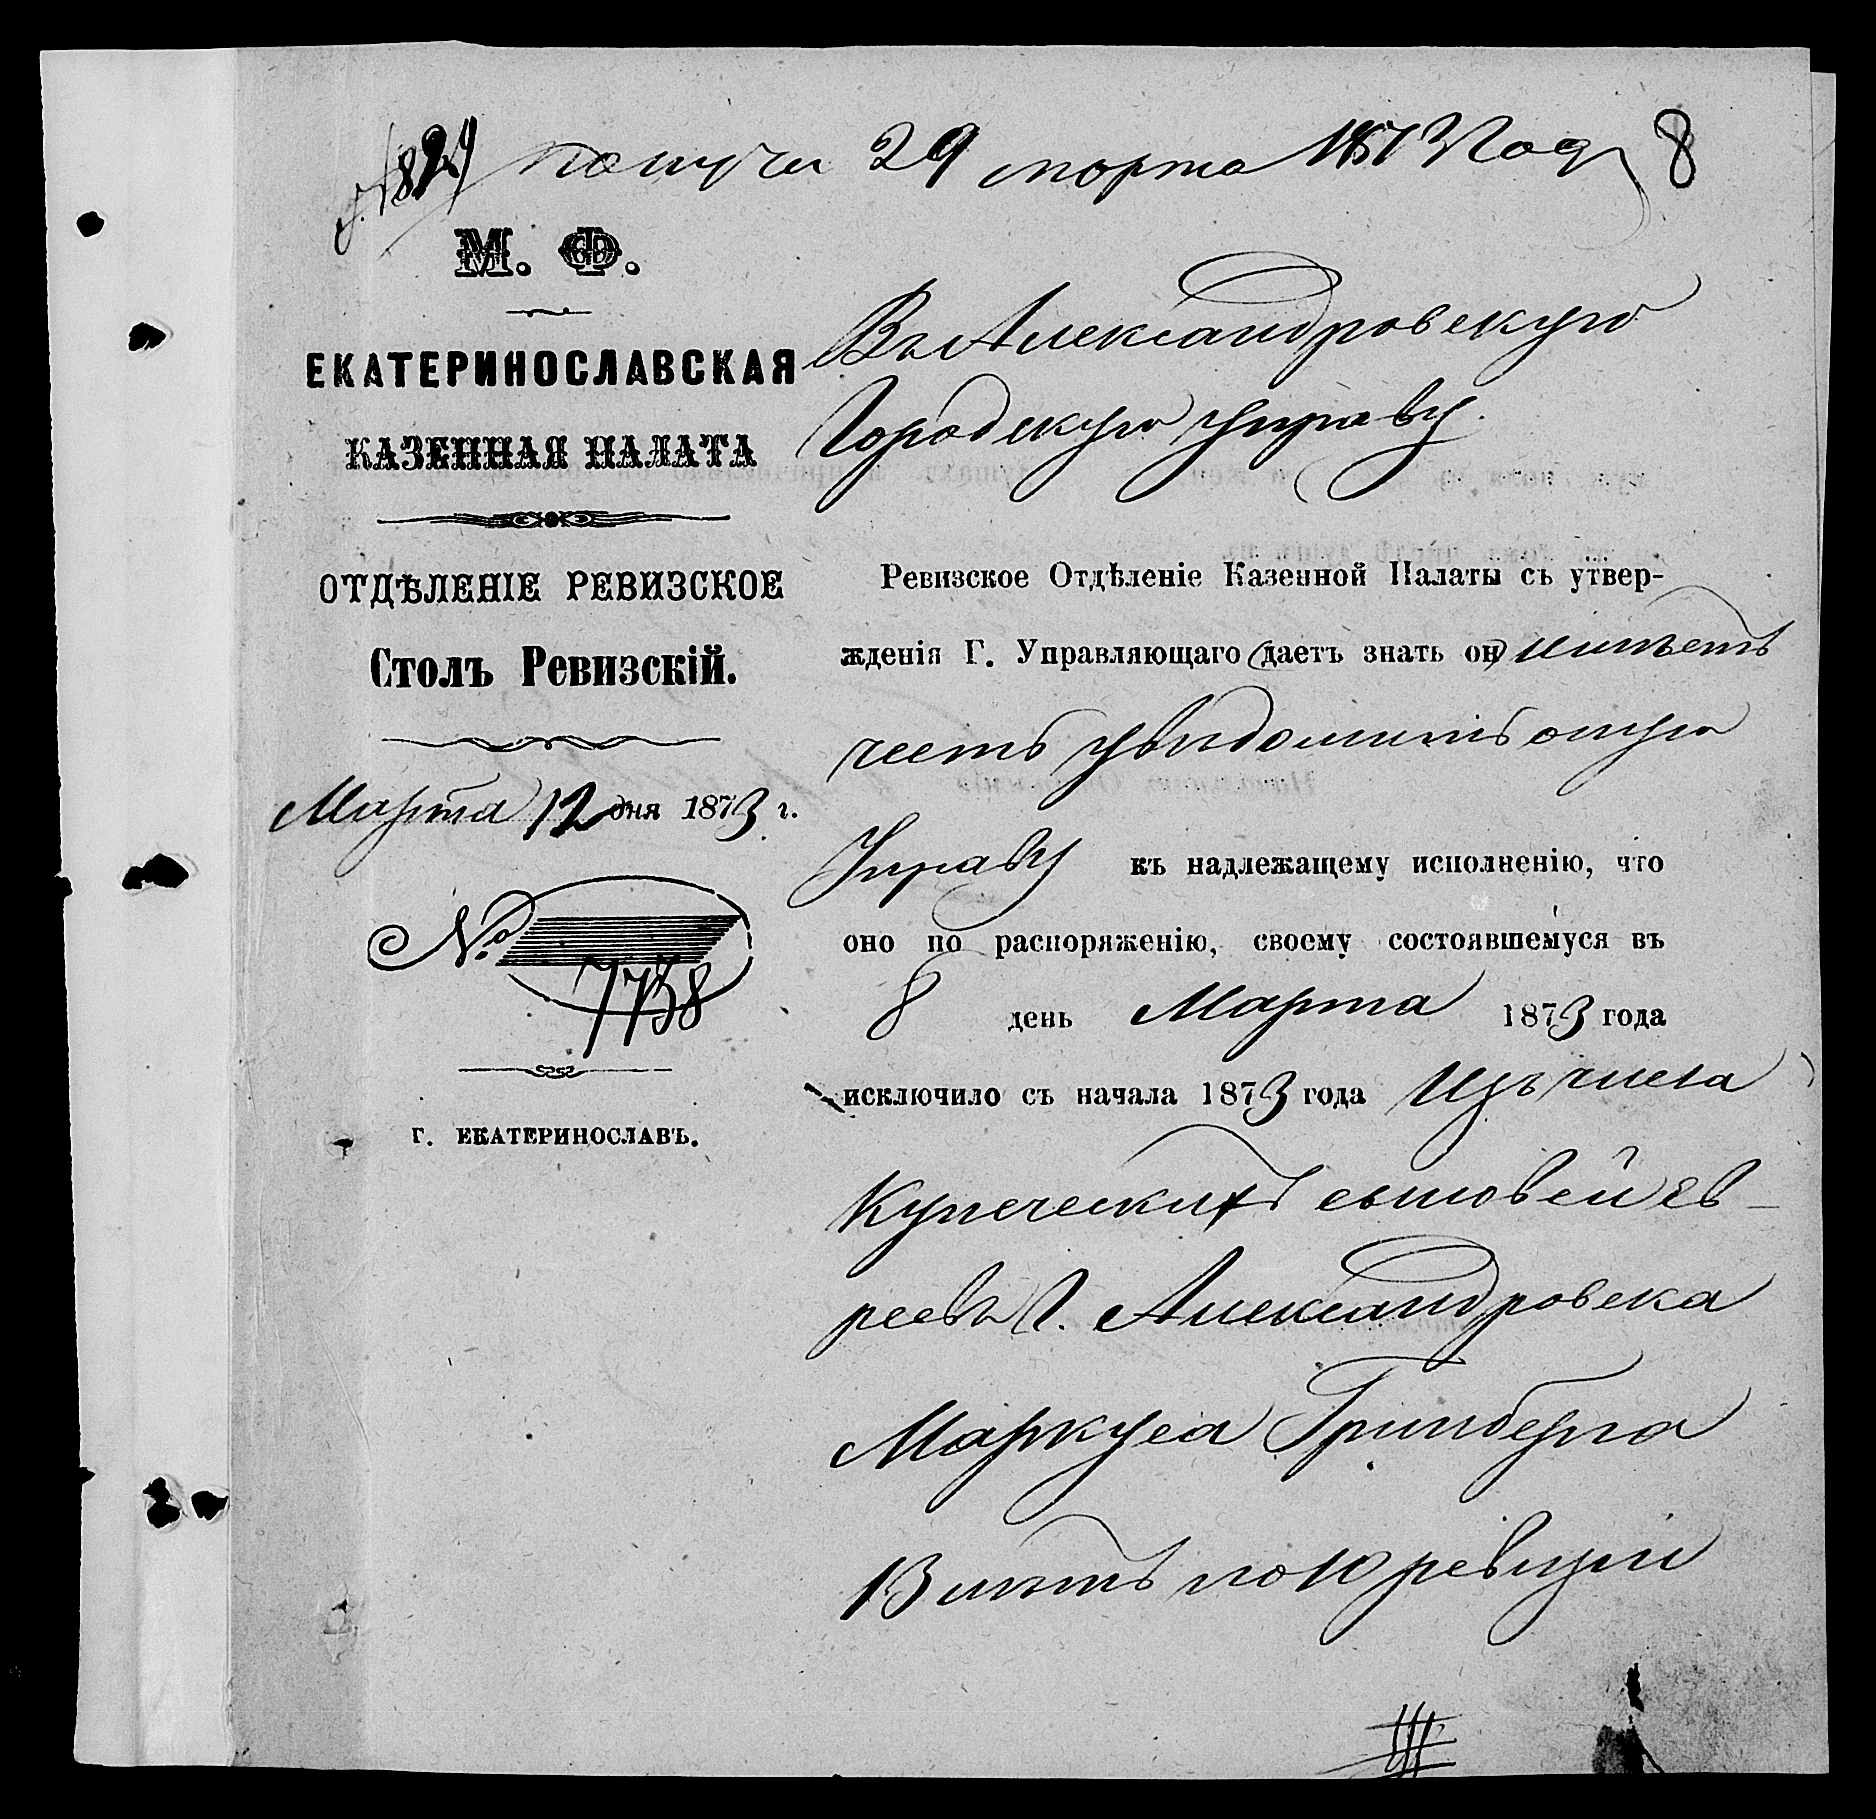 № 829 получ 29 марта 1873 Года 8
М. Ф.
ЕКАТЕРИНОСЛАВСКАЯ
КАЗЕННАЯ ПАЛАТА
ОТДѢЛЕНІЕ РЕВИЗСКОЕ
Столъ Ревизскій.
Марта 12 дня 1873 г.
№
7738
г. ЕКАТЕРИНОСЛАВЪ.
Въ Александровскую
Городскую управу.
Ревизское Отдѣленіе Казенной Палаты съ утвер-
жденія Г. Управляющаго (даетъ знать он) имѣетъ
честь увѣдомить оную
Управу къ надлежащему исполненію, что
оно по распоряженію, своему состоявшемуся въ
8 день Марта 1873 года
исключило съ начала 1873 года Изъ числа
Купеческихъ сыновей Ев-
реевъ г. Александровска
Маркуса Гринберга
13 лѣтъ по 10 ревизіи